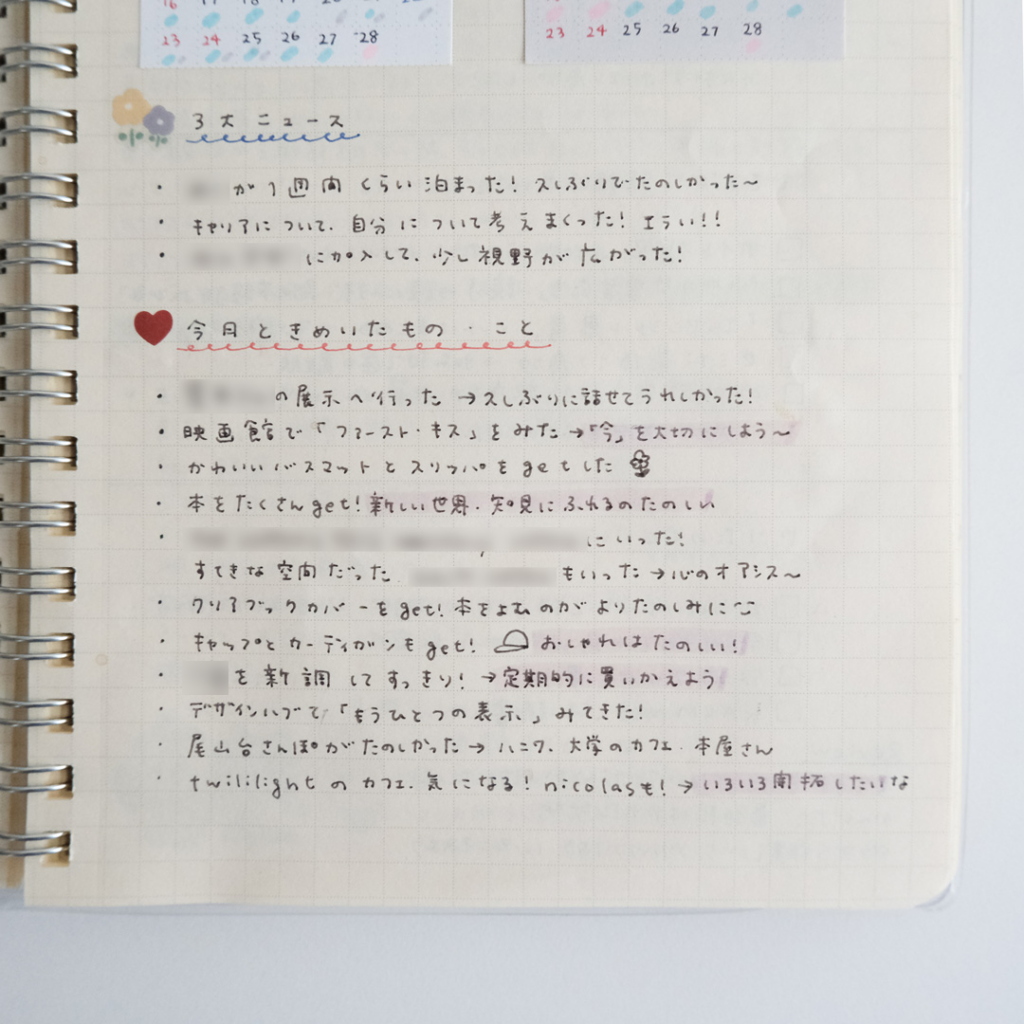 16 17 18 19 20 21 22
23 24 25 26 27 28
23 24 25 26 27 28
3大ニュース
・ が1週間くらい泊まった!久しぶりでたのしかった〜
・キャリアについて、自分について考えまくった!エラい!!
・ に加入して、少し視野が広がった!
今月ときめいたもの・こと
・ の展示へ行った→久しぶりに話せてうれしかった!
・映画館で「ファースト・キス」をみた→「今」を大切にしよう〜
・かわいいバスマットとスリッパをgetした
・本をたくさんget!新しい世界・知見にふれるのたのしい
・ にいった!
すてきな空間だった もいった→心のオアシス〜
・クリアブックカバーをget!本をよむのがよりたのしみに
・キャップとカーディガンもget! おしゃれはたのしい!
・ を新調してすっきり!→定期的に買いかえよう
・デザインハブで「もうひとつの表示」みてきた!
・尾山台さんぽがたのしかった→ハニワ、大学のカフェ・本屋さん
・twililightのカフェ、気になる!nicolasも!→いろいろ開拓したいな